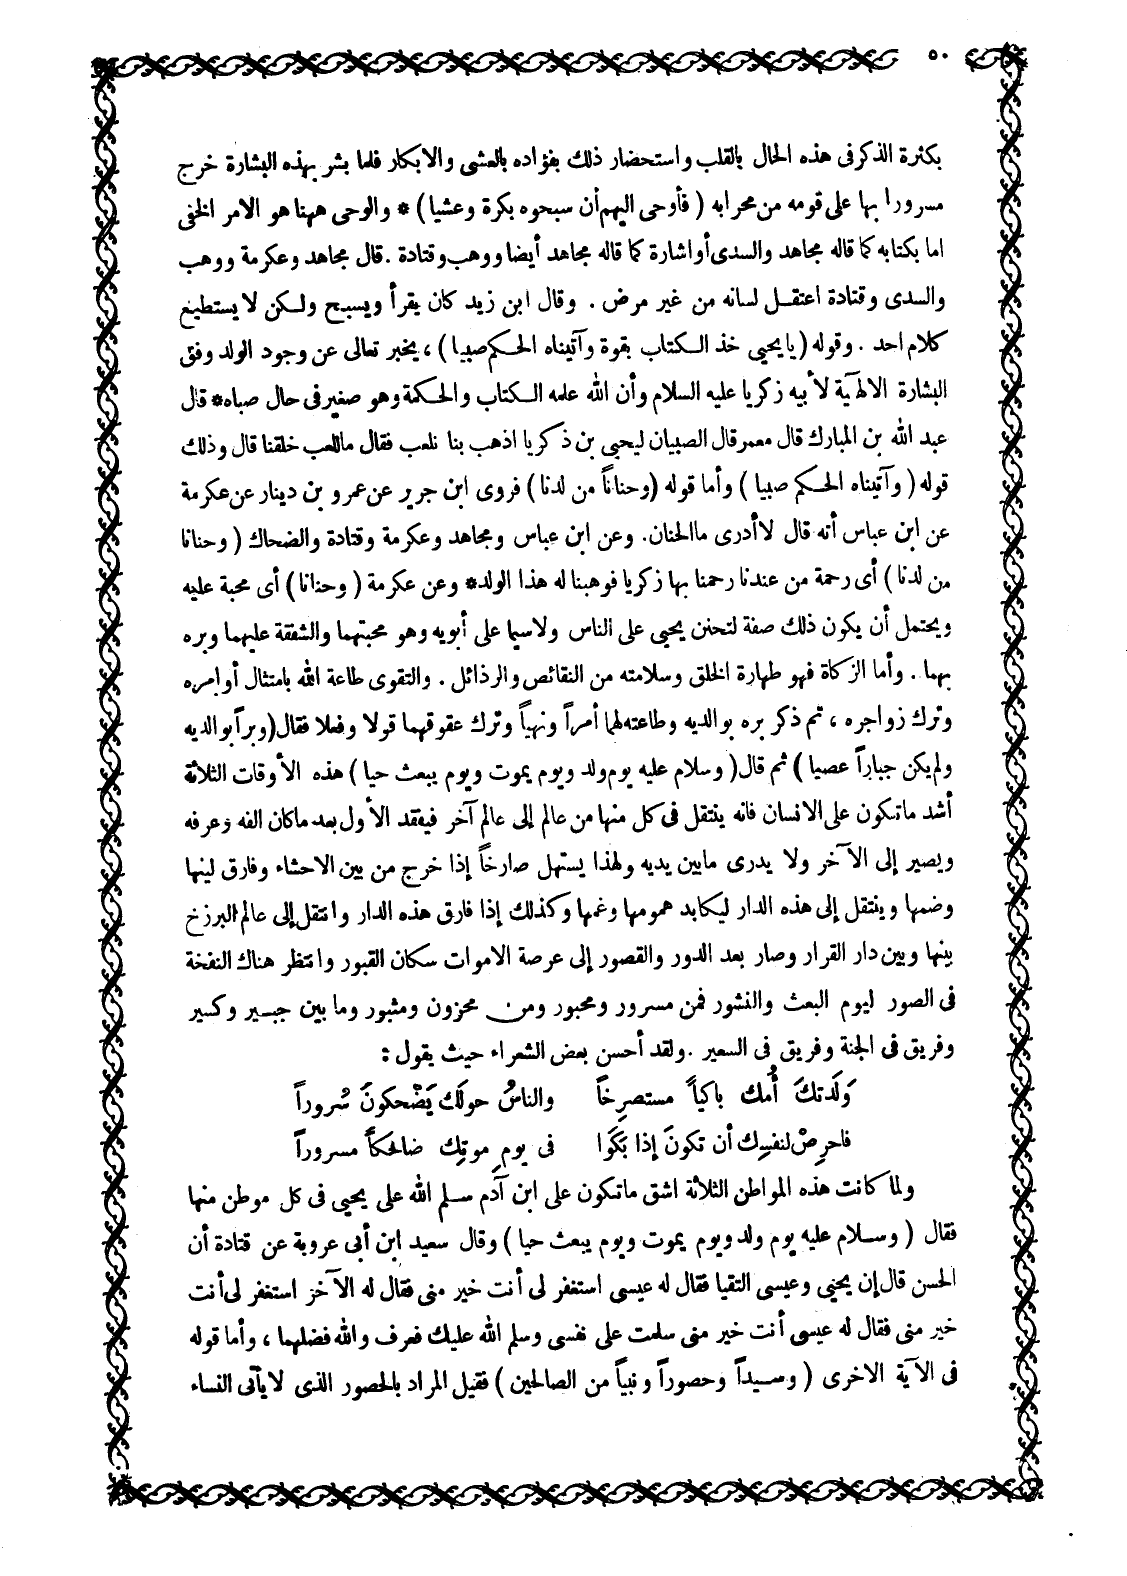 ٥٠
بكثرة الذكر فى هذه الحال بالقلب واستحضار ذلك بفؤاده بالعشى والابكار فلما بشر بهذه البشارة خرج
مسرورا بها على قومه من محرابه ( فأوحى اليهم أن سبحوه بكرة وعشيا ) * والوحى ههنا هو الامر الخفى
اما بكتابه كما قاله مجاهد والسدى أو اشارة كما قاله مجاهد أيضا ووهب وقتادة . قال مجاهد وعكرمة ووهب
والسدى وقتادة اعتقل لسانه من غير مرض . وقال ابن زيد كان يقرأ ويسبح ولكن لا يستطيع
كلام احد . وقوله ( يا يحيى خذ الكتاب بقوة وآتيناه الحكم صبيا ) ، يخبر تعالى عن وجود الولد وفق
البشارة الالهية لأبيه زكريا عليه السلام وأن الله علمه الكتاب والحكمة وهو صغير فى حال صباه * قال
عبد الله بن المبارك قال معمر قال الصبيان ليحيى بن ذكريا اذهب بنا نلعب فقال ما للعب خلقنا قال وذلك
قوله ( وآتيناه الحكم صبيا ) وأما قوله ( وحناناً من لدنا ) فروى ابن جرير عن عمرو بن دينار عن عكرمة
عن ابن عباس أنه قال لا أدرى ما الحنان . وعن ابن عباس ومجاهد وعكرمة وقتادة والضحاك ( وحنانا
من لدنا ) أى رحمة من عندنا رحمنا بها زكريا فوهبنا له هذا الولد * وعن عكرمة ( وحنانا ) أى محبة عليه
ويحتمل أن يكون ذلك صفة لتحنن يحيى على الناس ولاسيما على أبويه وهو محبتهما والشفقة عليهما وبره
بهما . وأما الزكاة فهو طهارة الخلق وسلامته من النقائص والرذائل . والتقوى طاعة الله بامتثال أوامره
وترك زواجره ، ثم ذكر بره بوالديه وطاعته لهما أمراً ونهياً وترك عقوقهما قولا وفعلا فقال ( وبراً بوالديه
ولم يكن جباراً عصيا ) ثم قال ( وسلام عليه يوم ولد ويوم يموت ويوم يبعث حيا ) هذه الأوقات الثلاثة
أشد ما تكون على الانسان فانه ينتقل فى كل منها من عالم إلى عالم آخر فيفقد الأول بعد ما كان الفه وعرفه
ويصير إلى الآخر ولا يدرى ما بين يديه ولهذا يستهل صارخاً إذا خرج من بين الاحشاء وفارق لينها
وضمها وينتقل إلى هذه الدار ليكابد همومها وغمها وكذلك إذا فارق هذه الدار وانتقل إلى عالم البرزخ
بينها وبين دار القرار وصار بعد الدور والقصور إلى عرصة الاموات سكان القبور وانتظر هناك النفخة
فى الصور ليوم البعث والنشور فمن مسرور ومحبور ومن محزون ومثبور وما بين جبير وكسير
وفريق فى الجنة وفريق فى السعير . ولقد أحسن بعض الشعراء حيث يقول :
وَلَدتكَ أُمك باكياً مستصرِخاً والناسُ حولَك يَضْحكونَ سُروراً
فاحرِصْ لنفسِك أن تكونَ إذا بَكَوا فى يومِ موتِك ضاحكاً مسروراً
ولما كانت هذه المواطن الثلاثة اشق ما تكون على ابن آدم سلم الله على يحيى فى كل موطن منها
فقال ( وسلام عليه يوم ولد ويوم يموت ويوم يبعث حيا ) وقال سعيد ابن أبى عروبة عن قتادة أن
الحسن قال إن يحيى وعيسى التقيا فقال له عيسى استغفر لى أنت خير منى فقال له الآخر استغفر لى أنت
خير منى فقال له عيسى أنت خير منى سلمت على نفسى وسلم الله عليك فعرف والله فضلهما ، وأما قوله
فى الآية الاخرى ( وسيداً وحصوراً ونبياً من الصالحين ) فقيل المراد بالحصور الذى لا يأتى النساء